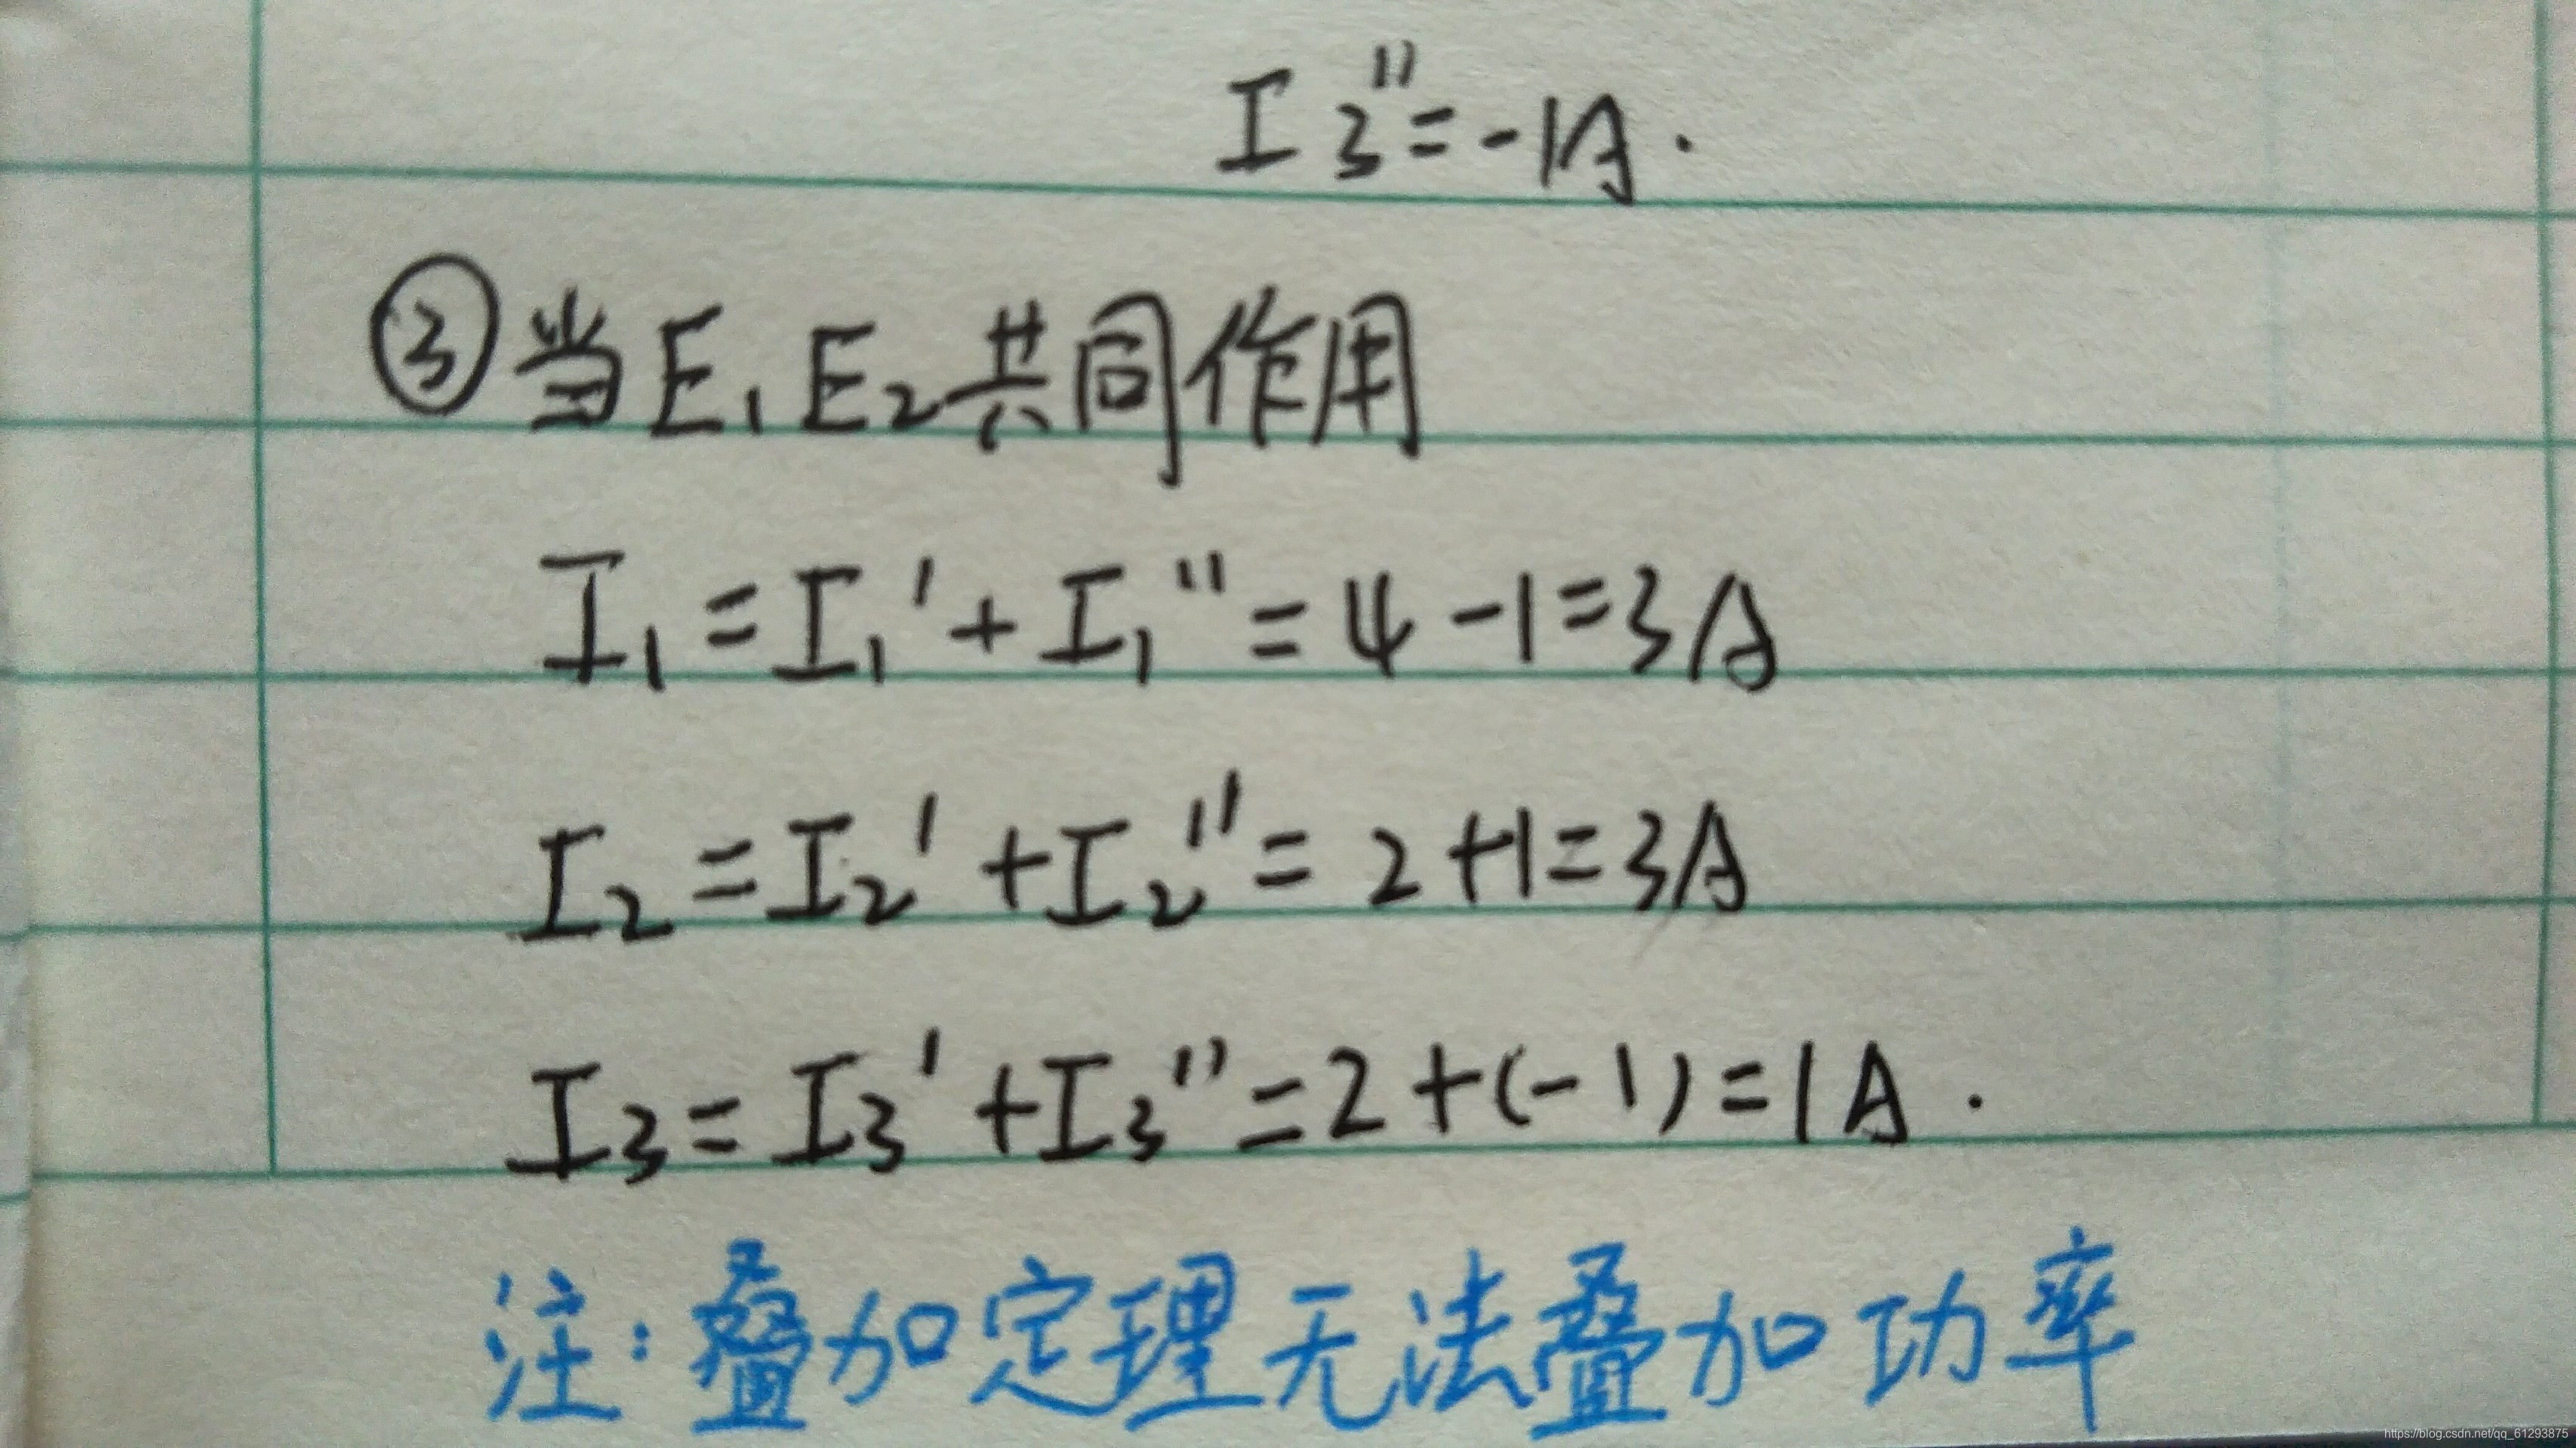 I₃''=-1A.
③当E₁E₂共同作用
I₁=I₁'+I₁''=4-1=3A
I₂=I₂'+I₂''=2+1=3A
I₃=I₃'+I₃''=2+(-1)=1A.
注:叠加定理无法叠加功率
https://blog.csdn.net/qq_61293875